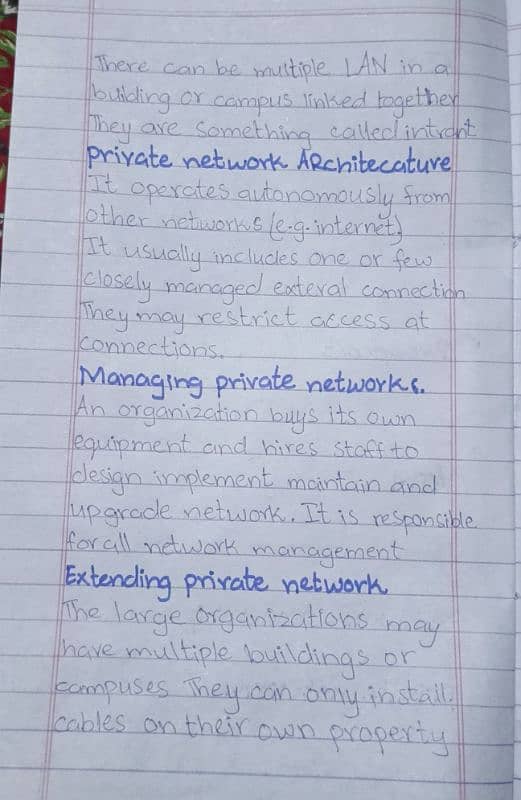 There can be multiple LAN in a
building or campus linked together
They are something called intrant
private network ARchitecature
It operates autonomously from
other networks (e.g. internet)
It usually includes one or few
closely managed exteral connection
They may restrict access at
connections.
Managing private networks.
An organization buys its own
equipment and hires staff to
design implement maintain and
upgrade network. It is responsible
for all network management
Extending private network
The large organizations may
have multiple buildings or
campuses They can only install.
cables on their own property